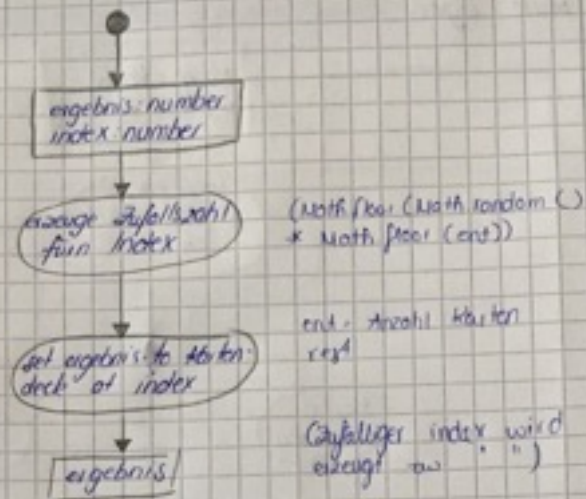 ergebnis: number
index: number
erzeuge Zufallszahl
für'n Index
(Math floor (Math random ()
* Math floor (end))
set ergebnis to Karten-
deck at index
end = Anzahl Karten
ergebnis
(Zufälliger index wird
erzeugt